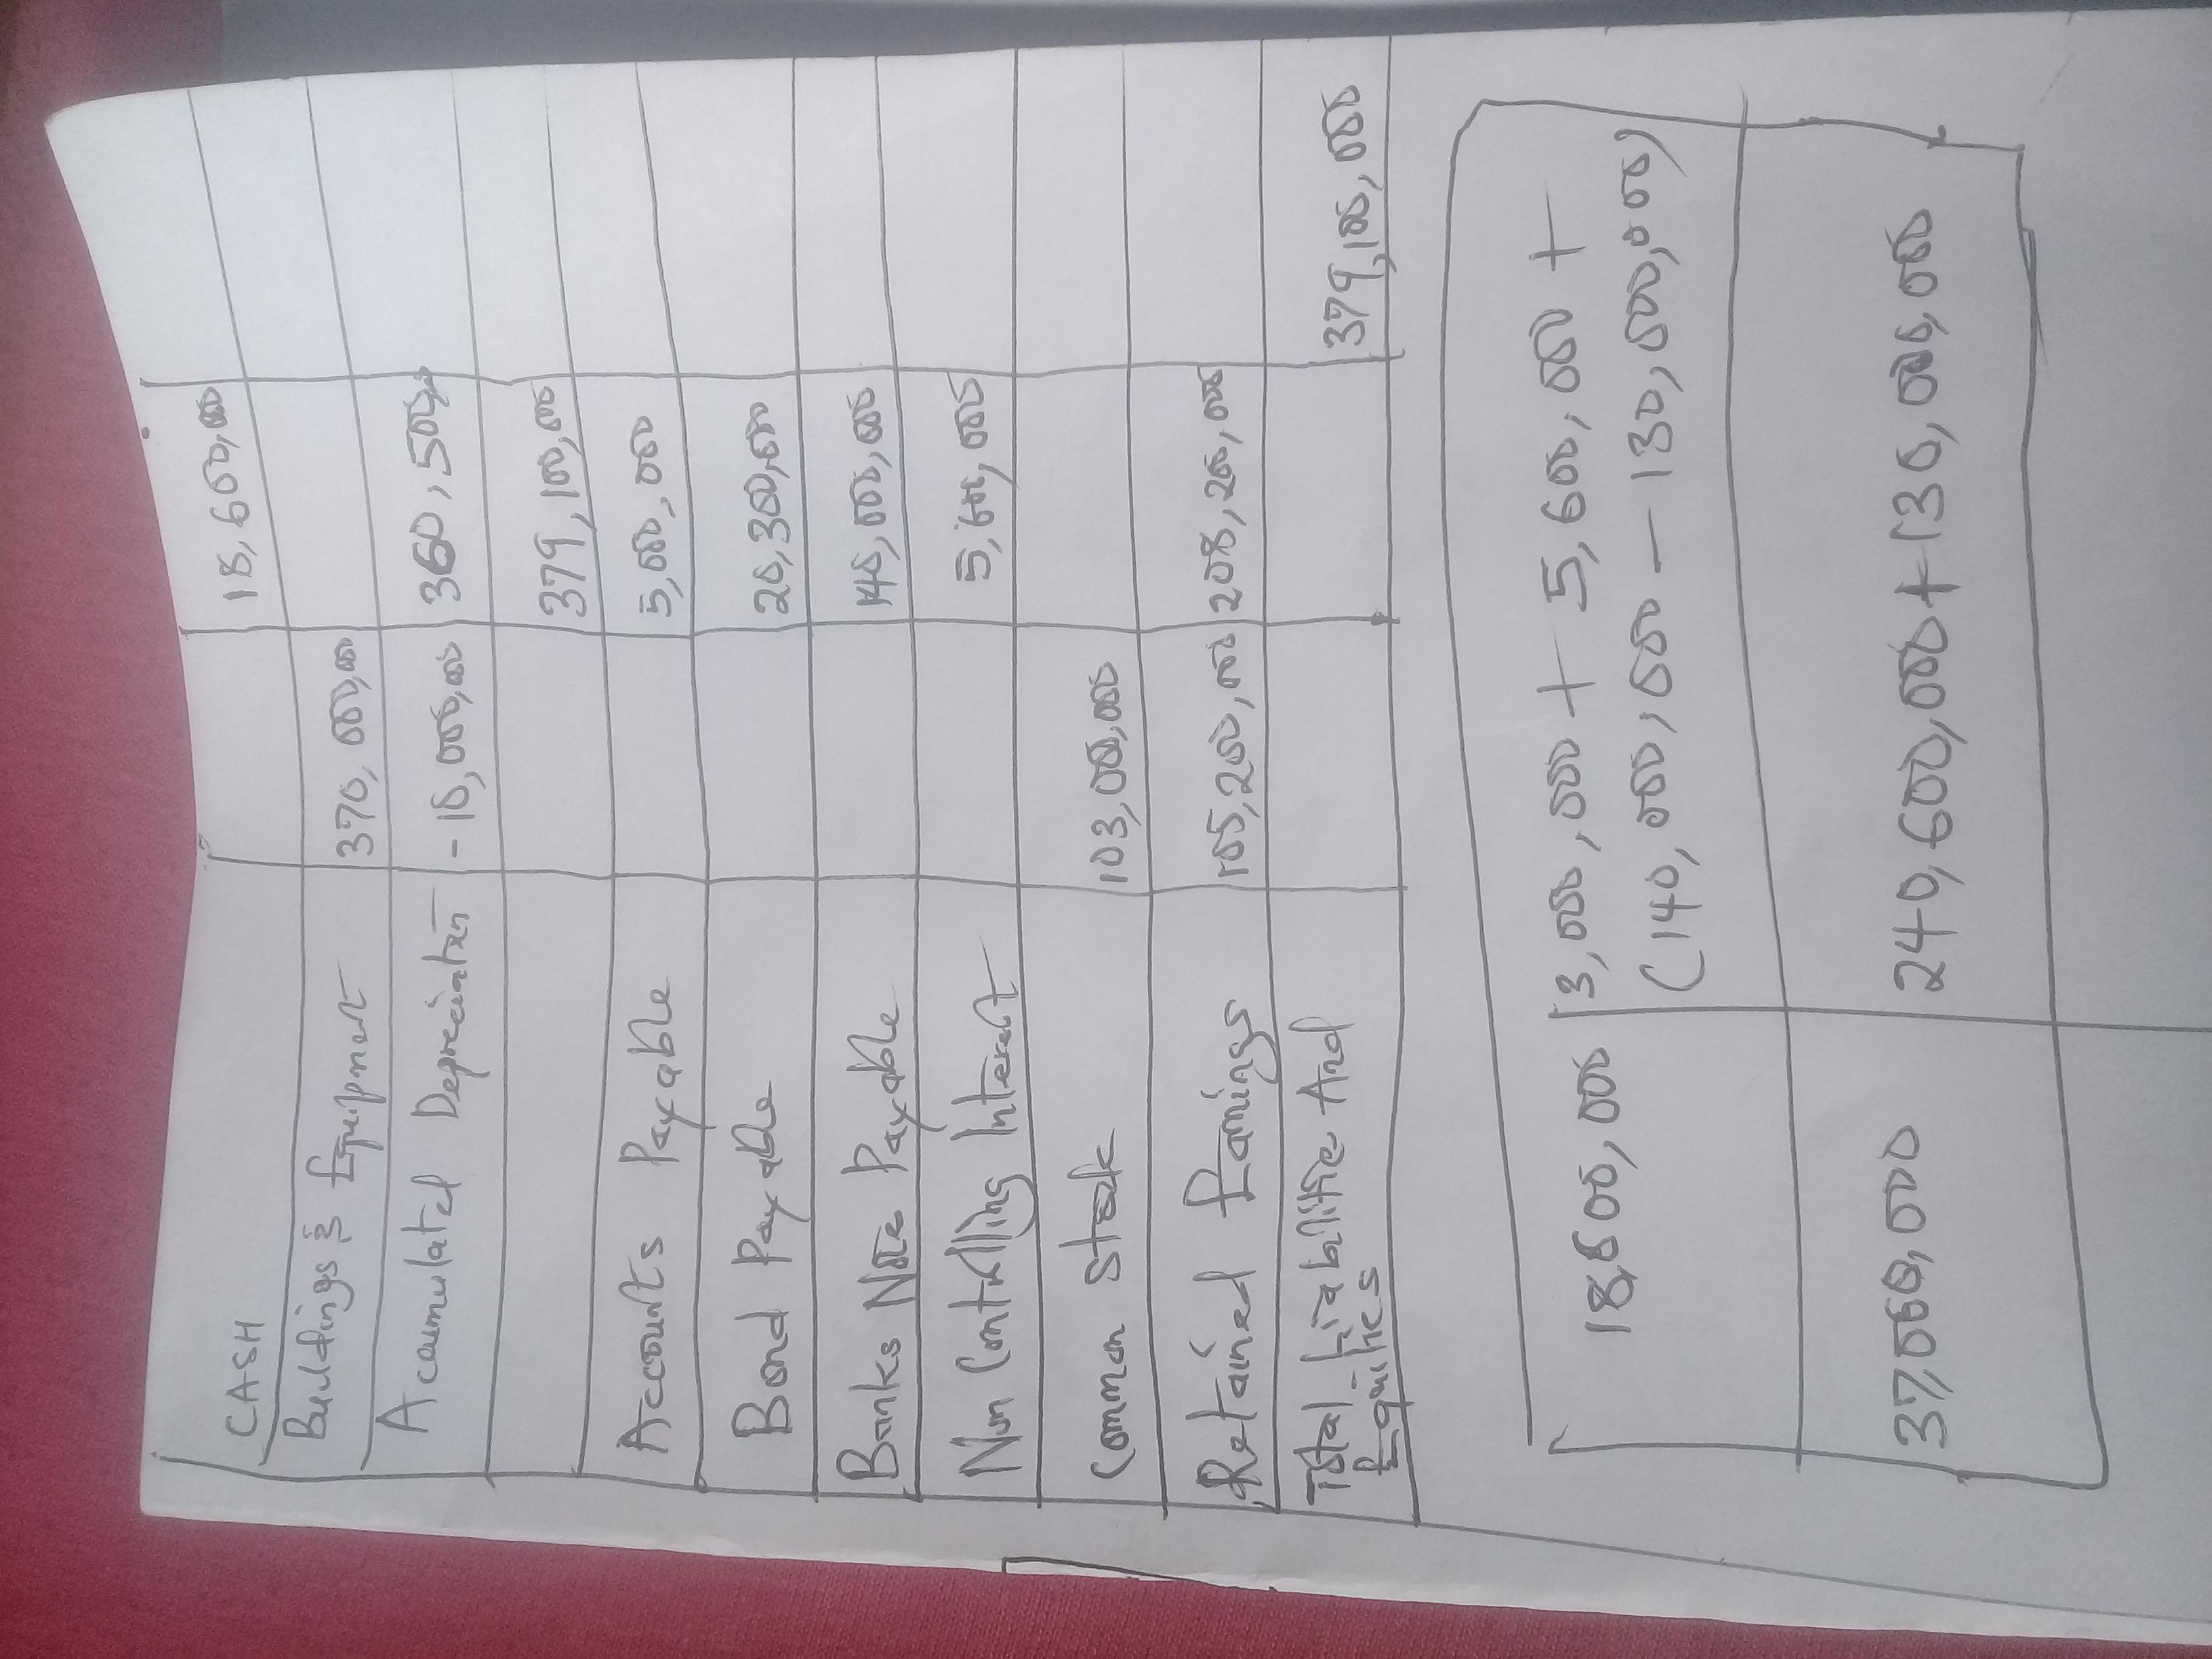 CASH 18,600,000
Buildings & Equipment 370,000,000
Accumulated Depreciation -10,000,000 360,500,000
379,100,000
Accounts Payable 5,000,000
Bond Payable 20,300,000
Banks Note Payable 140,000,000
Non Controlling Interest 5,600,000
Common Stock 103,000,000
Retained Earnings 105,200,000 208,200,000
Total Liabilitie And
Equities 379,100,000
18,600,000 3,000,000 + 5,600,000 +
(140,000,000 - 130,000,000)
240,600,000 + 130,000,000